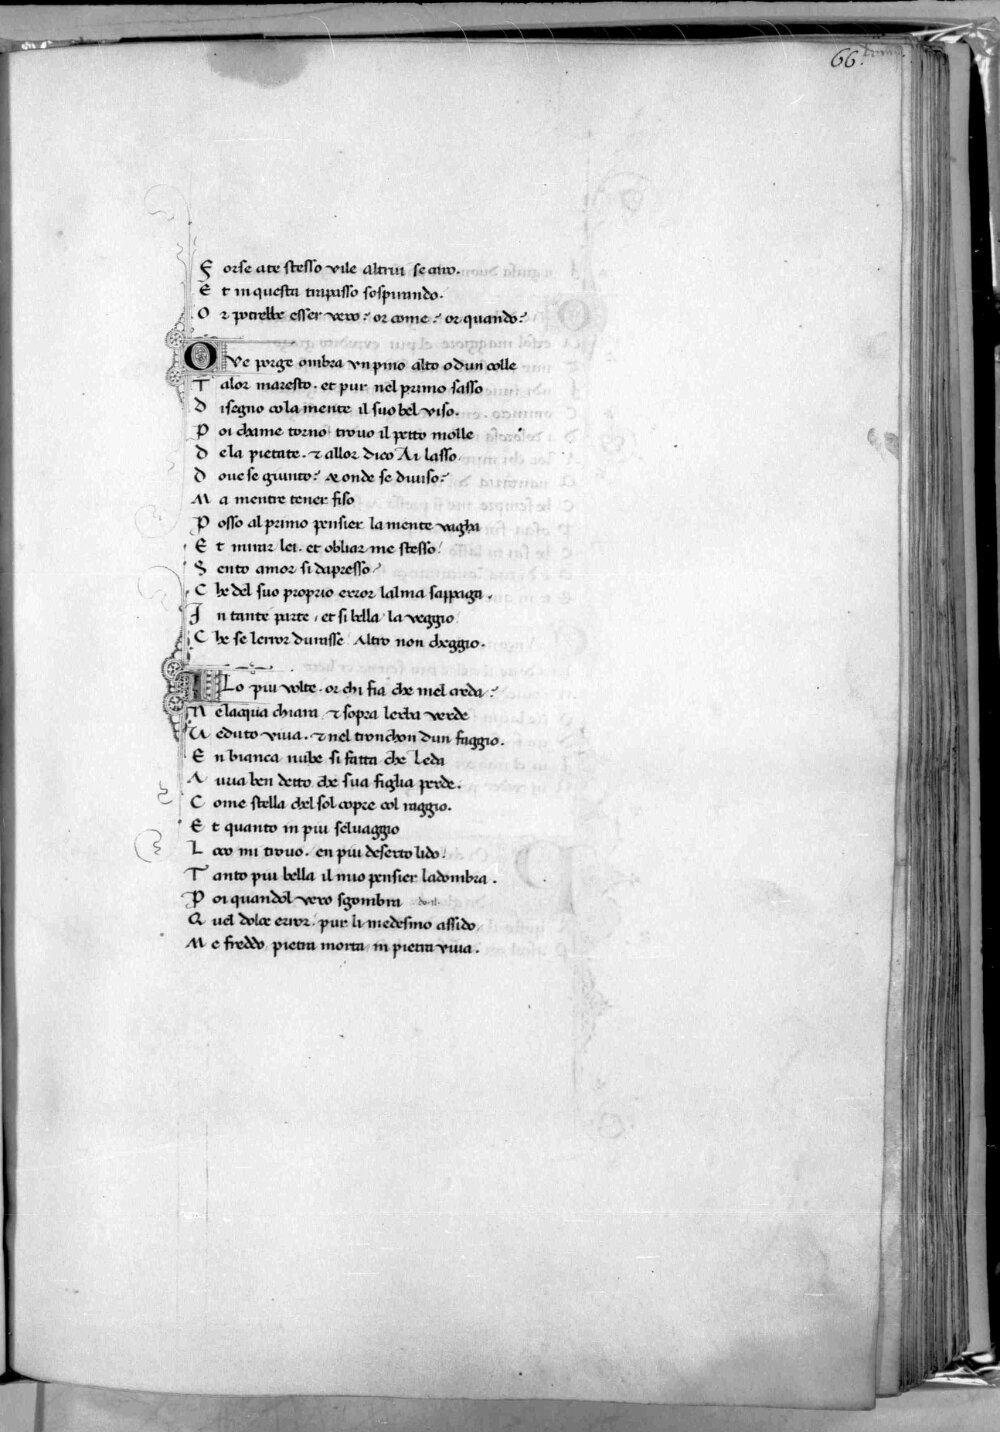 66.
F orse a te stesso vile altrui se caro.
E t in questa trapasso sospirando.
O r potrebbe esser vero? or come? or quando?
O ve porge ombra vn pino alto od un colle
T alor maresto. et pur nel primo sasso
D isegno co la mente il suo bel viso.
P oi chame torno trouo il petto molle
D e la pietate. & allor dico Ai lasso
D oue se giunto? & onde se diuiso?
M a mentre tener fiso
P osso al primo pensier la mente vagha
E t mirar lei. et obliar me stesso
S ento amor si dapresso
C he del suo proprio error lalma sappaga.
I n tante parte, et si bella la veggio
C he se lerror durasse Altro non cheggio.
I Lo piu volte. or chi fia che mel creda?
N elacqua chiara & sopra lerba verde
V eduto viua. & nel tronchon dun faggio.
E n bianca nube si fatta che Leda
A uria ben detto che sua figlia perde.
C ome stella chel sol copre col raggio.
E t quanto in piu seluaggio
L oco mi trouo. en piu deserto lido:
T anto piu bella il mio pensier ladombra.
P oi quandol vero sgombra
Q uel dolce error pur li medesmo assido
M e freddo pietra morta in pietra viua.